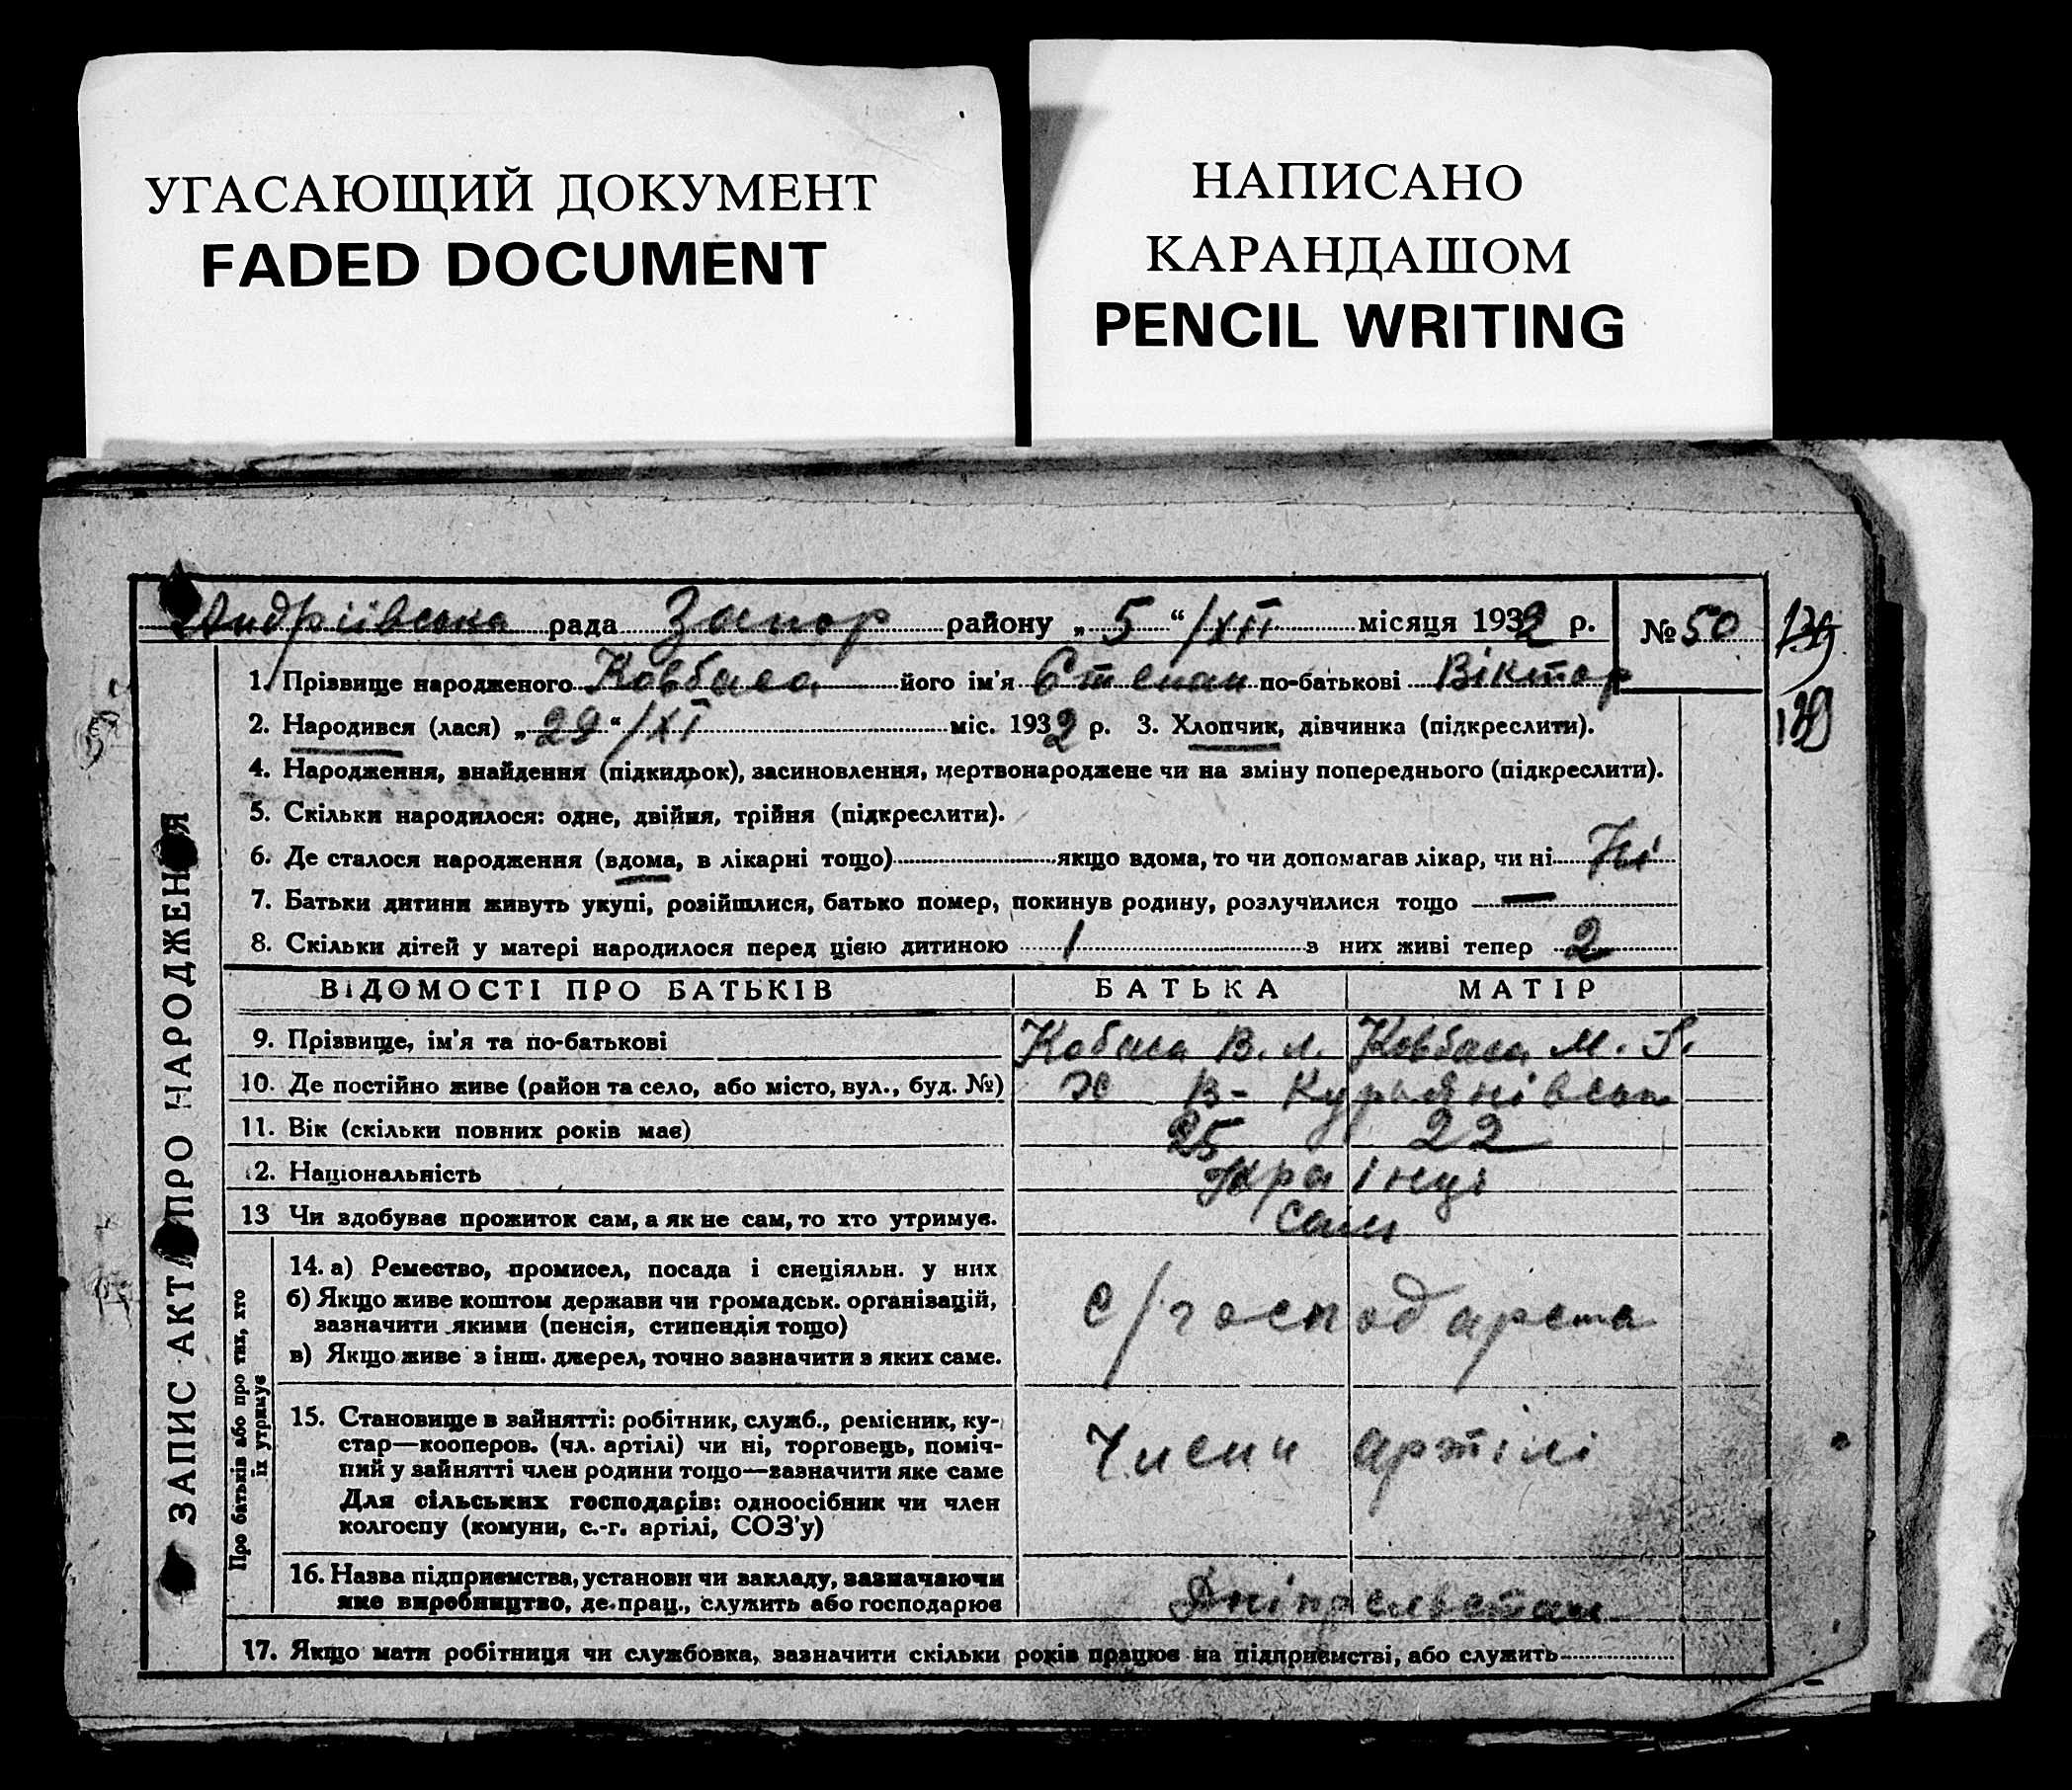 УГАСАЮЩИЙ ДОКУМЕНТ
FADED DOCUMENT
НАПИСАНО
КАРАНДАШОМ
PENCIL WRITING
Андріївська рада Запор району „ 5 “ /XII місяця 1932 р. № 50
139
139
1. Прізвище народженого Ковбаса його ім'я Степан по-батькові Віктор
2. Народився (лася) „ 29 “ /XI міс. 1932 р. 3. Хлопчик, дівчинка (підкреслити).
4. Народження, знайдення (підкидьок), засиновлення, мертвонароджене чи на зміну попереднього (підкреслити).
5. Скільки народилося: одне, двійня, трійня (підкреслити).
6. Де сталося народження (вдома, в лікарні тощо) якщо вдома, то чи допомагав лікар, чи ні Ні
7. Батьки дитини живуть укупі, розійшлися, батько помер, покинув родину, розлучилися тощо —
8. Скільки дітей у матері народилося перед цією дитиною 1 з них живі тепер 2
ЗАПИС АКТА ПРО НАРОДЖЕННЯ
ВІДОМОСТІ ПРО БАТЬКІВ БАТЬКА МАТІР
9. Прізвище, ім'я та по-батькові Кобаса В. Л. Ковбаса М.
10. Де постійно живе (район та село, або місто, вул., буд. №) Х В-
11. Вік (скільки повних років має) 25 22
12. Національність Українці
13 Чи здобуває прожиток сам, а як не сам, то хто утримує. сами
Про батьків або про тих, хто
їх утримує
14. а) Ремество, промисел, посада і спеціяльн. у них
б) Якщо живе коштом держави чи громадськ. організацій,
зазначити якими (пенсія, стипендія тощо)
в) Якщо живе з інш. джерел, точно зазначити з яких саме.
с/господарста
15. Становище в зайнятті: робітник, служб., ремісник, ку-
стар—кооперов. (чл. артілі) чи ні, торговець, поміч-
ний у зайнятті член родини тощо—зазначити яке саме
Для сільських господарів: одноосібник чи член
колгоспу (комуни, с.-г. артілі, СОЗ'у)
Члени артілі
16. Назва підприємства, установи чи закладу, зазначаючи
яке виробництво, де прац., служить або господарює
17. Якщо мати робітниця чи службовка, зазначити скільки років працює на підприємстві, або служить